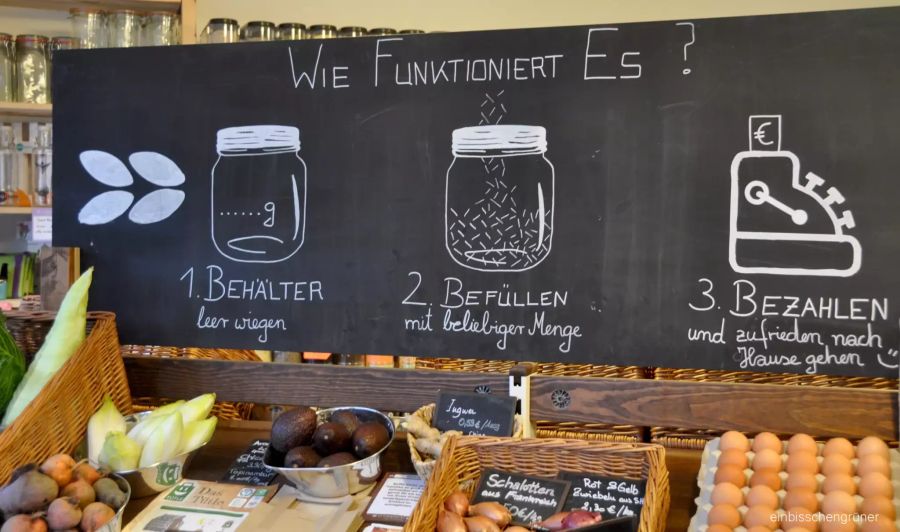 Wie Funktioniert Es?
€
......g
1. Behälter
leer wiegen
2. Befüllen
mit beliebiger Menge
3. Bezahlen
und zufrieden nach
Hause gehen
Ingwer
Schalotten
aus Frankreich
Rot & Gelb
Zwiebeln aus
einbisschengrüner